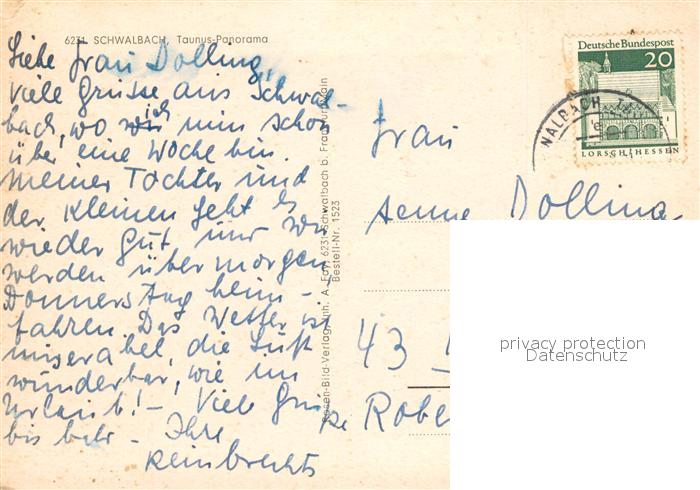 6231 SCHWALBACH, Taunus-Panorama
Liebe Frau Dolling,
viele Grüsse aus Schwal-
bach, wo ich nun schon
über eine Woche bin.
Meiner Tochter und
der Kleinen geht es
wieder gut und wir
werden übermorgen
Donnerstag heim-
fahren. Das Wetter ist
miserabel, die Luft
wunderbar, wie im
Urlaub! - Viele Grü
bis bald - Ihre
Reinbrechts
Rosen-Bild-Verlag, Inh. A. Fay, 6231 Schwalbach b. Frankfurt/Main
Bestell-Nr. 1523
Deutsche Bundespost
20
LORSCH/HESSEN
NALBACH
Frau
Aenne Dolling
43
Robe
privacy protection
Datenschutz